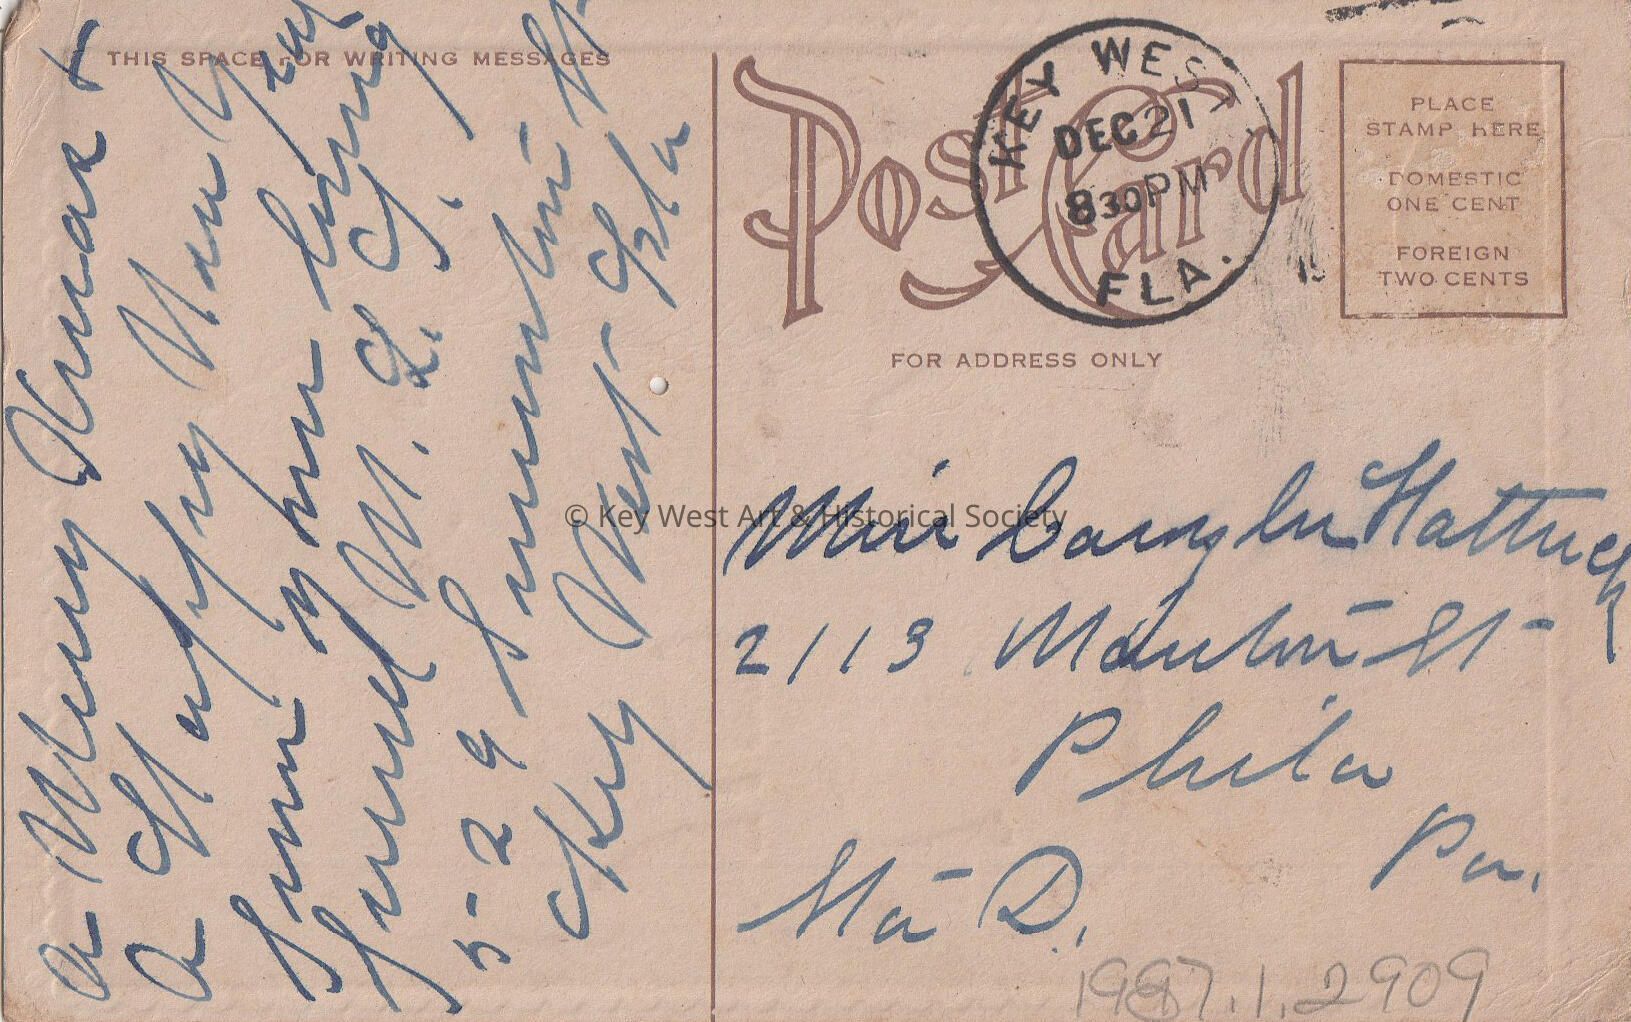 THIS SPACE FOR WRITING MESSAGES
a Merry Xmas &
a Happy New Year
from your loving
friend M. L. G.
529 Simonton St
Key West Fla
Post Card
KEY WEST
DEC 21
830PM
FLA.
PLACE
STAMP HERE
DOMESTIC
ONE CENT
FOREIGN
TWO CENTS
FOR ADDRESS ONLY
© Key West Art & Historical Society
Miss Hattrick
2113 St
Phila
Pa.
Sta D.
1987.1.2909